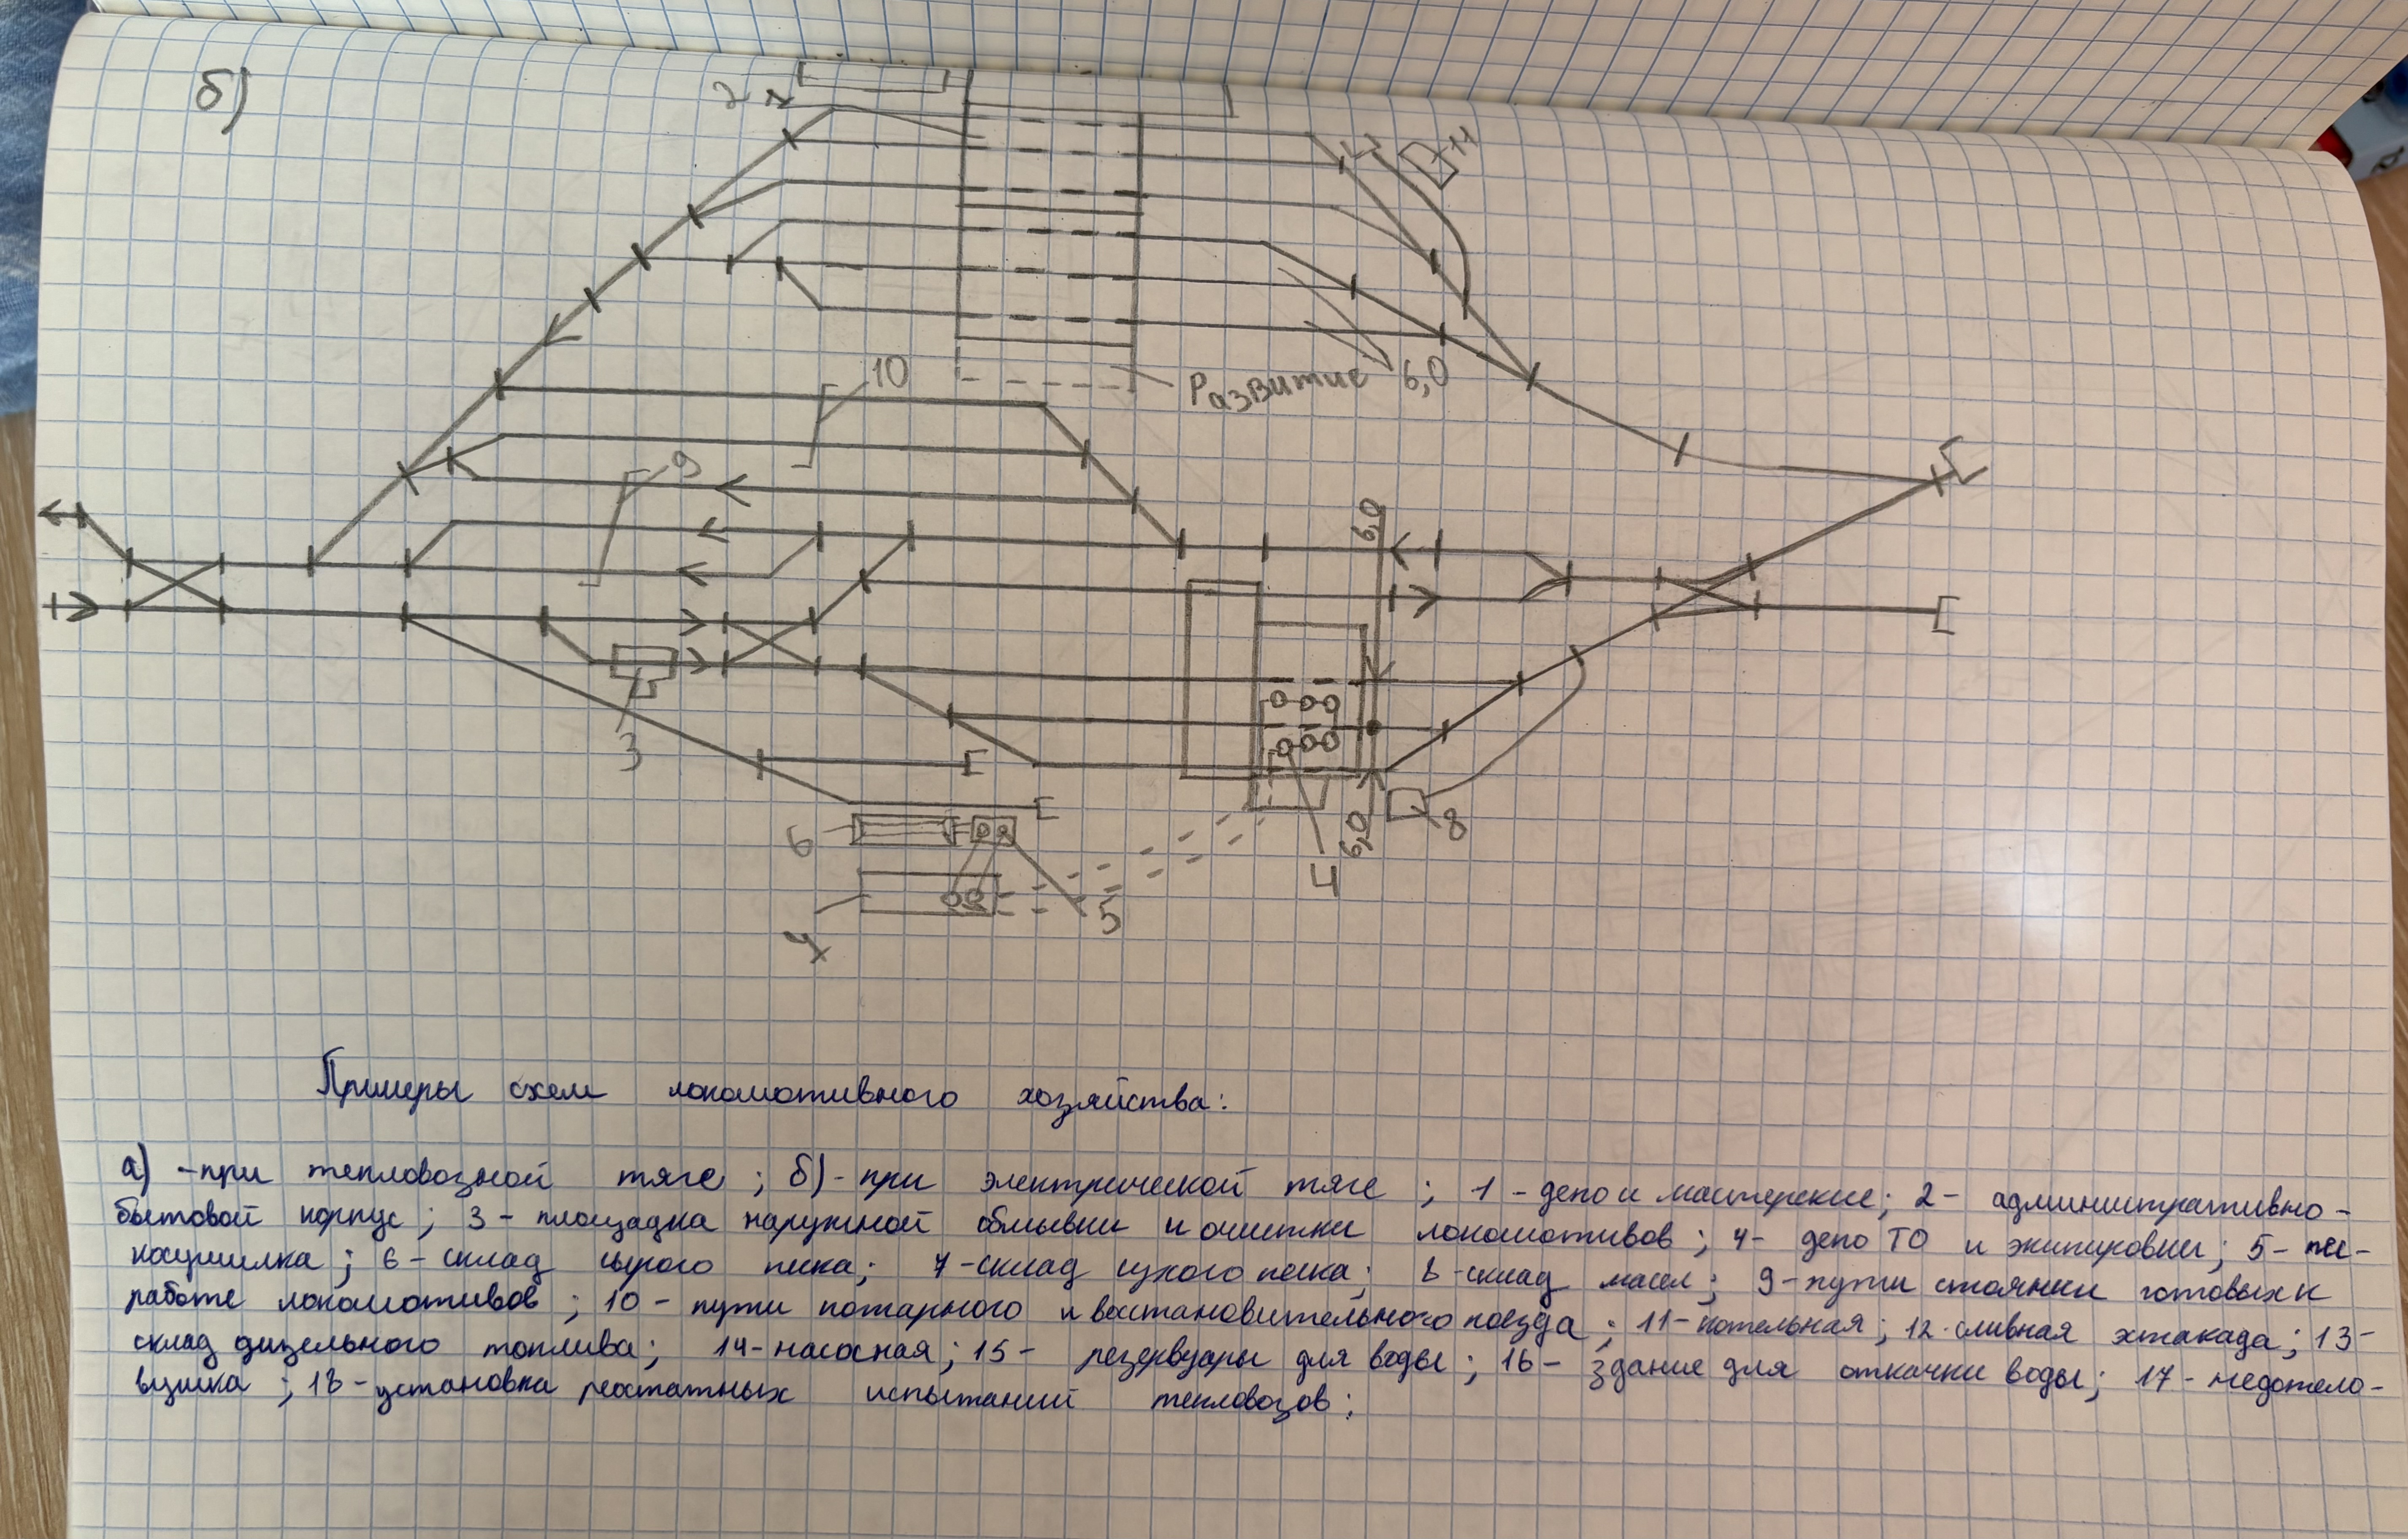 б)
2
11
10
Развитие 6,0
9
6,0
3
6
8
6,0
4
5
7
Примеры схем локомотивного хозяйства:
а) - при тепловозной тяге ; б) - при электрической тяге ; 1 - депо и мастерские; 2 - административно-
бытовой корпус ; 3 - площадка наружной обмывки и очистки локомотивов ; 4 - депо ТО и экипировки ; 5 - пес-
косушилка ; 6 - склад сырого песка; 7 - склад сухого песка; 8 - склад масел ; 9 - пути стоянки готовых к
работе локомотивов ; 10 - пути пожарного и восстановительного поезда ; 11 - котельная ; 12 - сливная эстакада ; 13 -
склад дизельного топлива; 14 - насосная ; 15 - резервуары для воды ; 16 - здание для откачки воды ; 17 -
вушка ; 18 - установка реостатных испытаний тепловозов ;